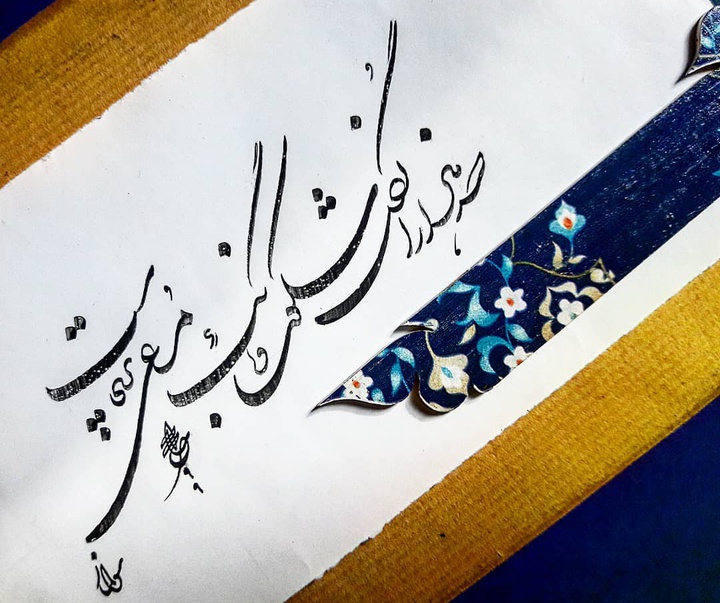 صد هزاران گل شکفت و بانگ مرغی برنخاست
۹۹